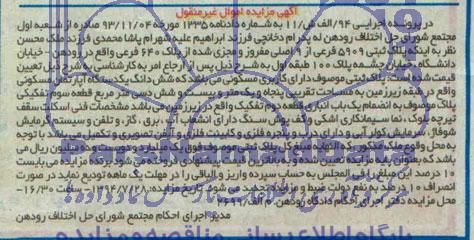 آگهی مزایده اموال غیرمنقول
در پرونده اجرایی ۹۴/الف ش/۱۱ به شماره دادنامه ۱۳۳۵ مورخه ۹۳/۱۱/۰۴ صادره از شعبه اول
مجتمع شورای حل اختلاف رودهن له پدرام دخانچی فرزند ابراهیم علیه شهرام پاشا محمدی فرزند ملک محسن
نظر به اینکه پلاک ثبتی ۵۹۰۹ فرعی از ۹ اصلی مفروز و مجزی شده از پلاک ۶۴۰ فرعی واقع در رودهن - خیابان
دانشگاه - خیابان چشمه پلاک ۱۰۰ طبقه اول به شرح ذیل پس از ارجاع امر به کارشناسی به شرح ذیل تعیین
قیمت شده است پلاک ثبتی موصوف دارای کاربری مسکونی می باشد که شش دانگ یکدستگاه آپارتمان مسکونی
واقع در طبقه زیرزمین به مساحت تقریب پنجاه و یک متر و بیست و شش دسی متر مربع قطعه سوم تفکیکی
پلاک موصوف به انضمام یک باب انباری قطعه دوم تفکیک واقع در زیرزمین می باشد مشخصات فنی اسکلت سقف
تیرچه بلوک، نما سیمانکاری اشکی و کف پوش سنگ دارای انشعاب آب، برق، گاز، و تلفن و سیستم گرمایش
شوفاژ، سرمایش کولر آبی و دارای درب و پنجره فلزی و کابینت فلزی و آیفن تصویری و تکمیل می باشد با توجه
به محل وقوع ملک مذکور که النهایه مبلغ کل پلاک ثبتی موصوف فوق یک میلیارد و دویست و ده میلیون ریال می
باشد که بعنوان پایه مزایده تعیین شده و به بالاترین قیمت پیشنهادی فروخته می شود برنده مزایده می بایست
۱۰ درصد این مبلغ را فی المجلس به حساب سپرده واریز و الباقی را در مهلت یک ماهه تودیع نماید در صورت
انصراف ۱۰ درصد به نفع دولت ضبط و مزایده تجدید می شود. تاریخ مزایده: ۱۳۹۴/۷/۲۸ - ساعت ۱۶/۳۰ -
محل مزایده دفتر اجرای احکام دادگاه رودهن. م الف/۲۶۹۹
مدیر اجرای احکام مجتمع شورای حل اختلاف رودهن
پایگاه اطلاع رسانی مناقصه و مزایده